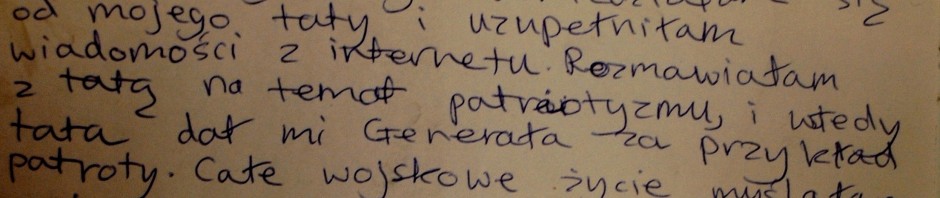 od mojego taty i uzupełniłam się
wiadomości z internetu. Rozmawiałam
z tatą na temat patriotyzmu, i wtedy
tata dał mi Generała za przykład
patroty. Całe wojskowe życie